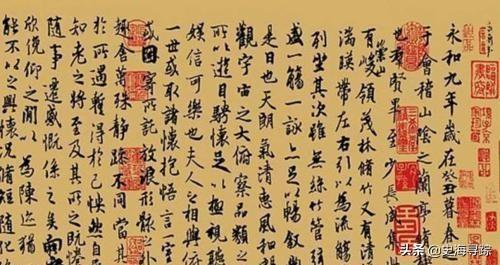 永和九年歲在癸丑暮
于會稽山陰之蘭亭
也群賢畢至少長咸
有崇山峻領茂林脩竹又有清
湍暎帶左右引以為流觴
列坐其次雖無絲竹管
盛一觴一詠亦足以暢敘
是日也天朗氣清惠風和
觀宇宙之大俯察品類
所以遊目騁懷足以極視聽
娛信可樂也夫人之相與俯
一世或取諸懷抱悟言一
或因寄所託放浪形骸之外
趣舍萬殊靜躁不同當其
於所遇暫得於己快然自
知老之將至及其所之既
隨事遷感慨係之矣向
欣俛仰之間以為陳迹猶
能不以之興懷況脩短隨化
头条 @史海寻踪